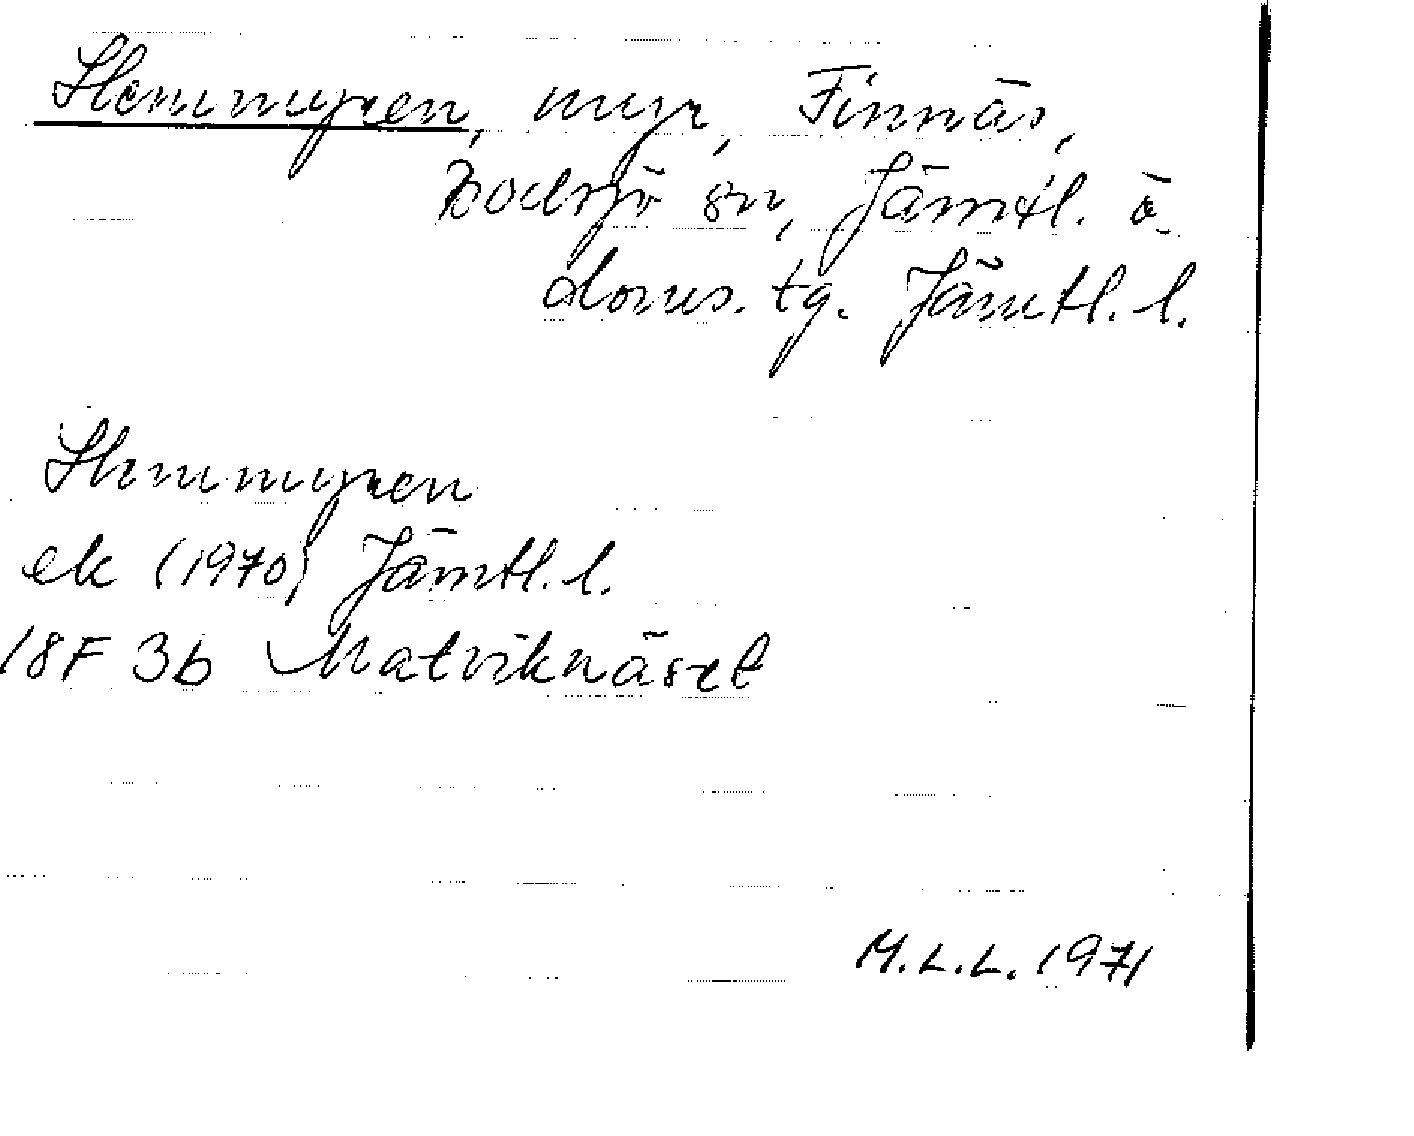 Slemmyren, myr, Finnäs,
Bodsjö sn, Jämtl. ö.
doms. tg. Jämtl. l.
Slemmyren
ek (1970) Jämtl. l.
18F 3b Matviknäset
M.L.L. 1971